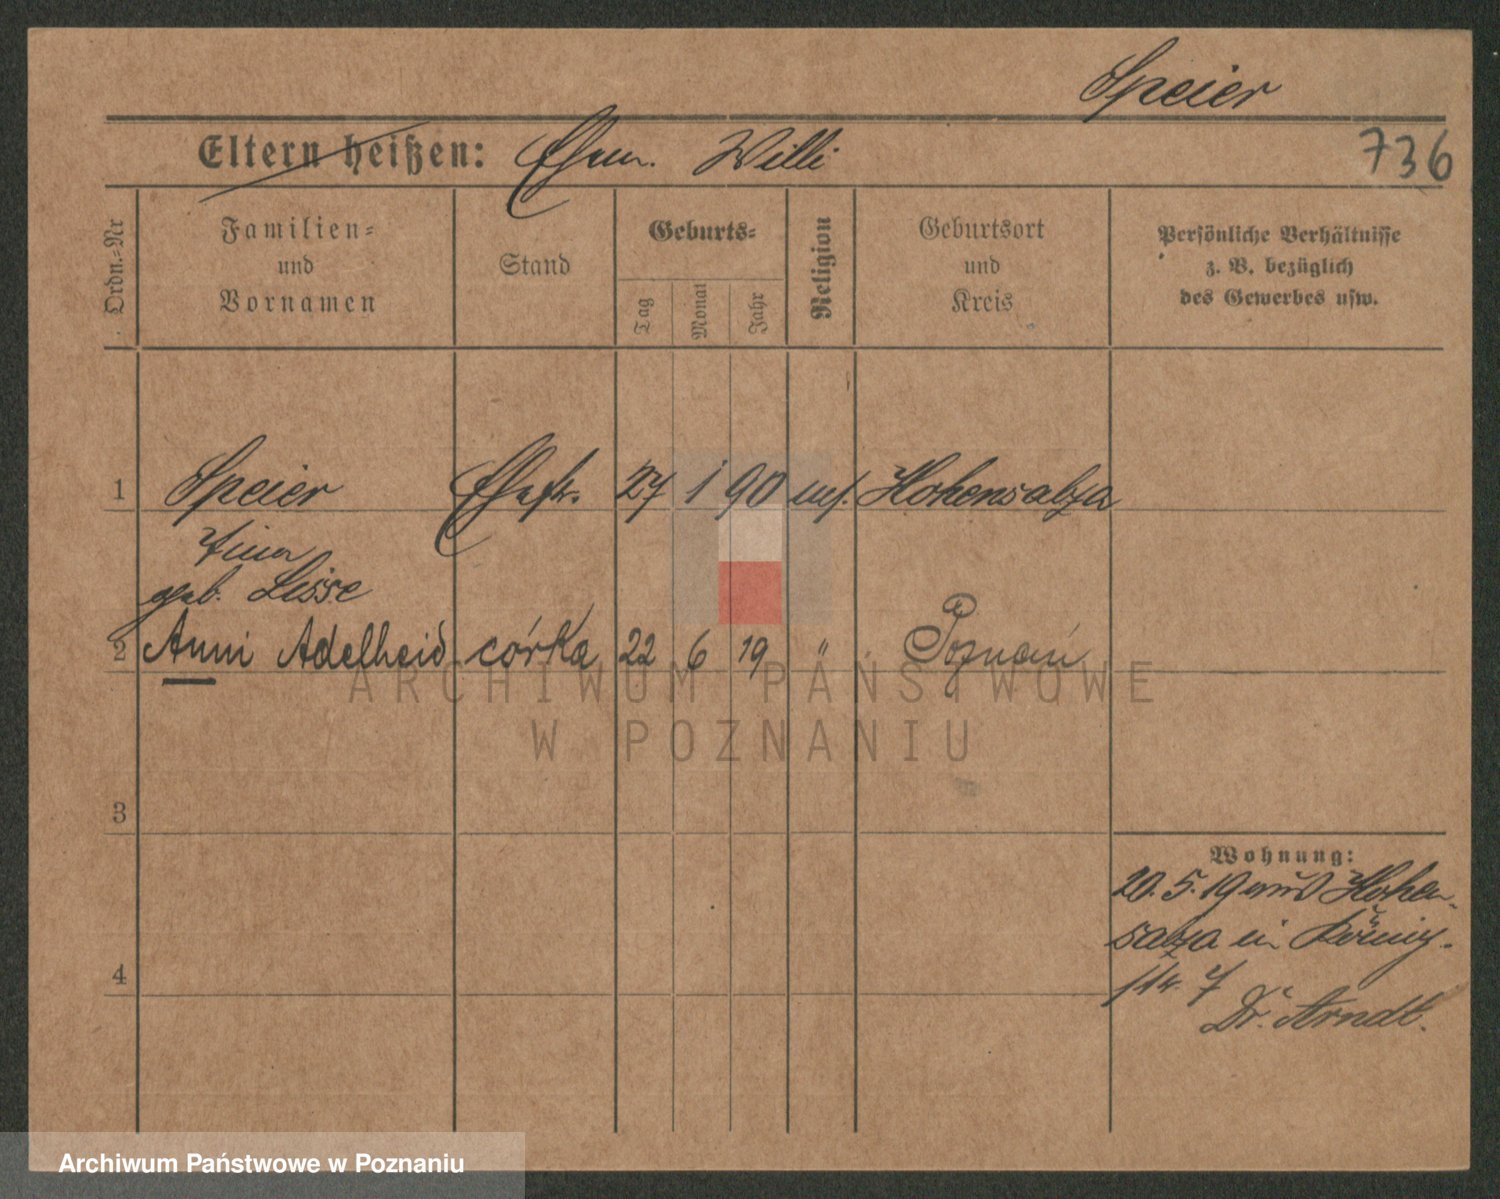 Speier
Eltern heißen: Ehem. Willi
736
Ordn.-Nr
Familien-
und
Vornamen
Stand
Geburts-
Tag
Monat
Jahr
Religion
Geburtsort
und
Kreis
Persönliche Verhältnisse
z. B. bezüglich
des Gewerbes usw.
1 Speier Ehefr. 27 1 90 Hohensalza
geb. Lisse
2 Anni Adelheid córka 22 6 19 " Poznań
ARCHIWUM PAŃSTWOWE
W POZNANIU
3
4
Wohnung:
20.5.19 aus Hohen-
salza in König-
str. 7
Dr. Arndt.
Archiwum Państwowe w Poznaniu